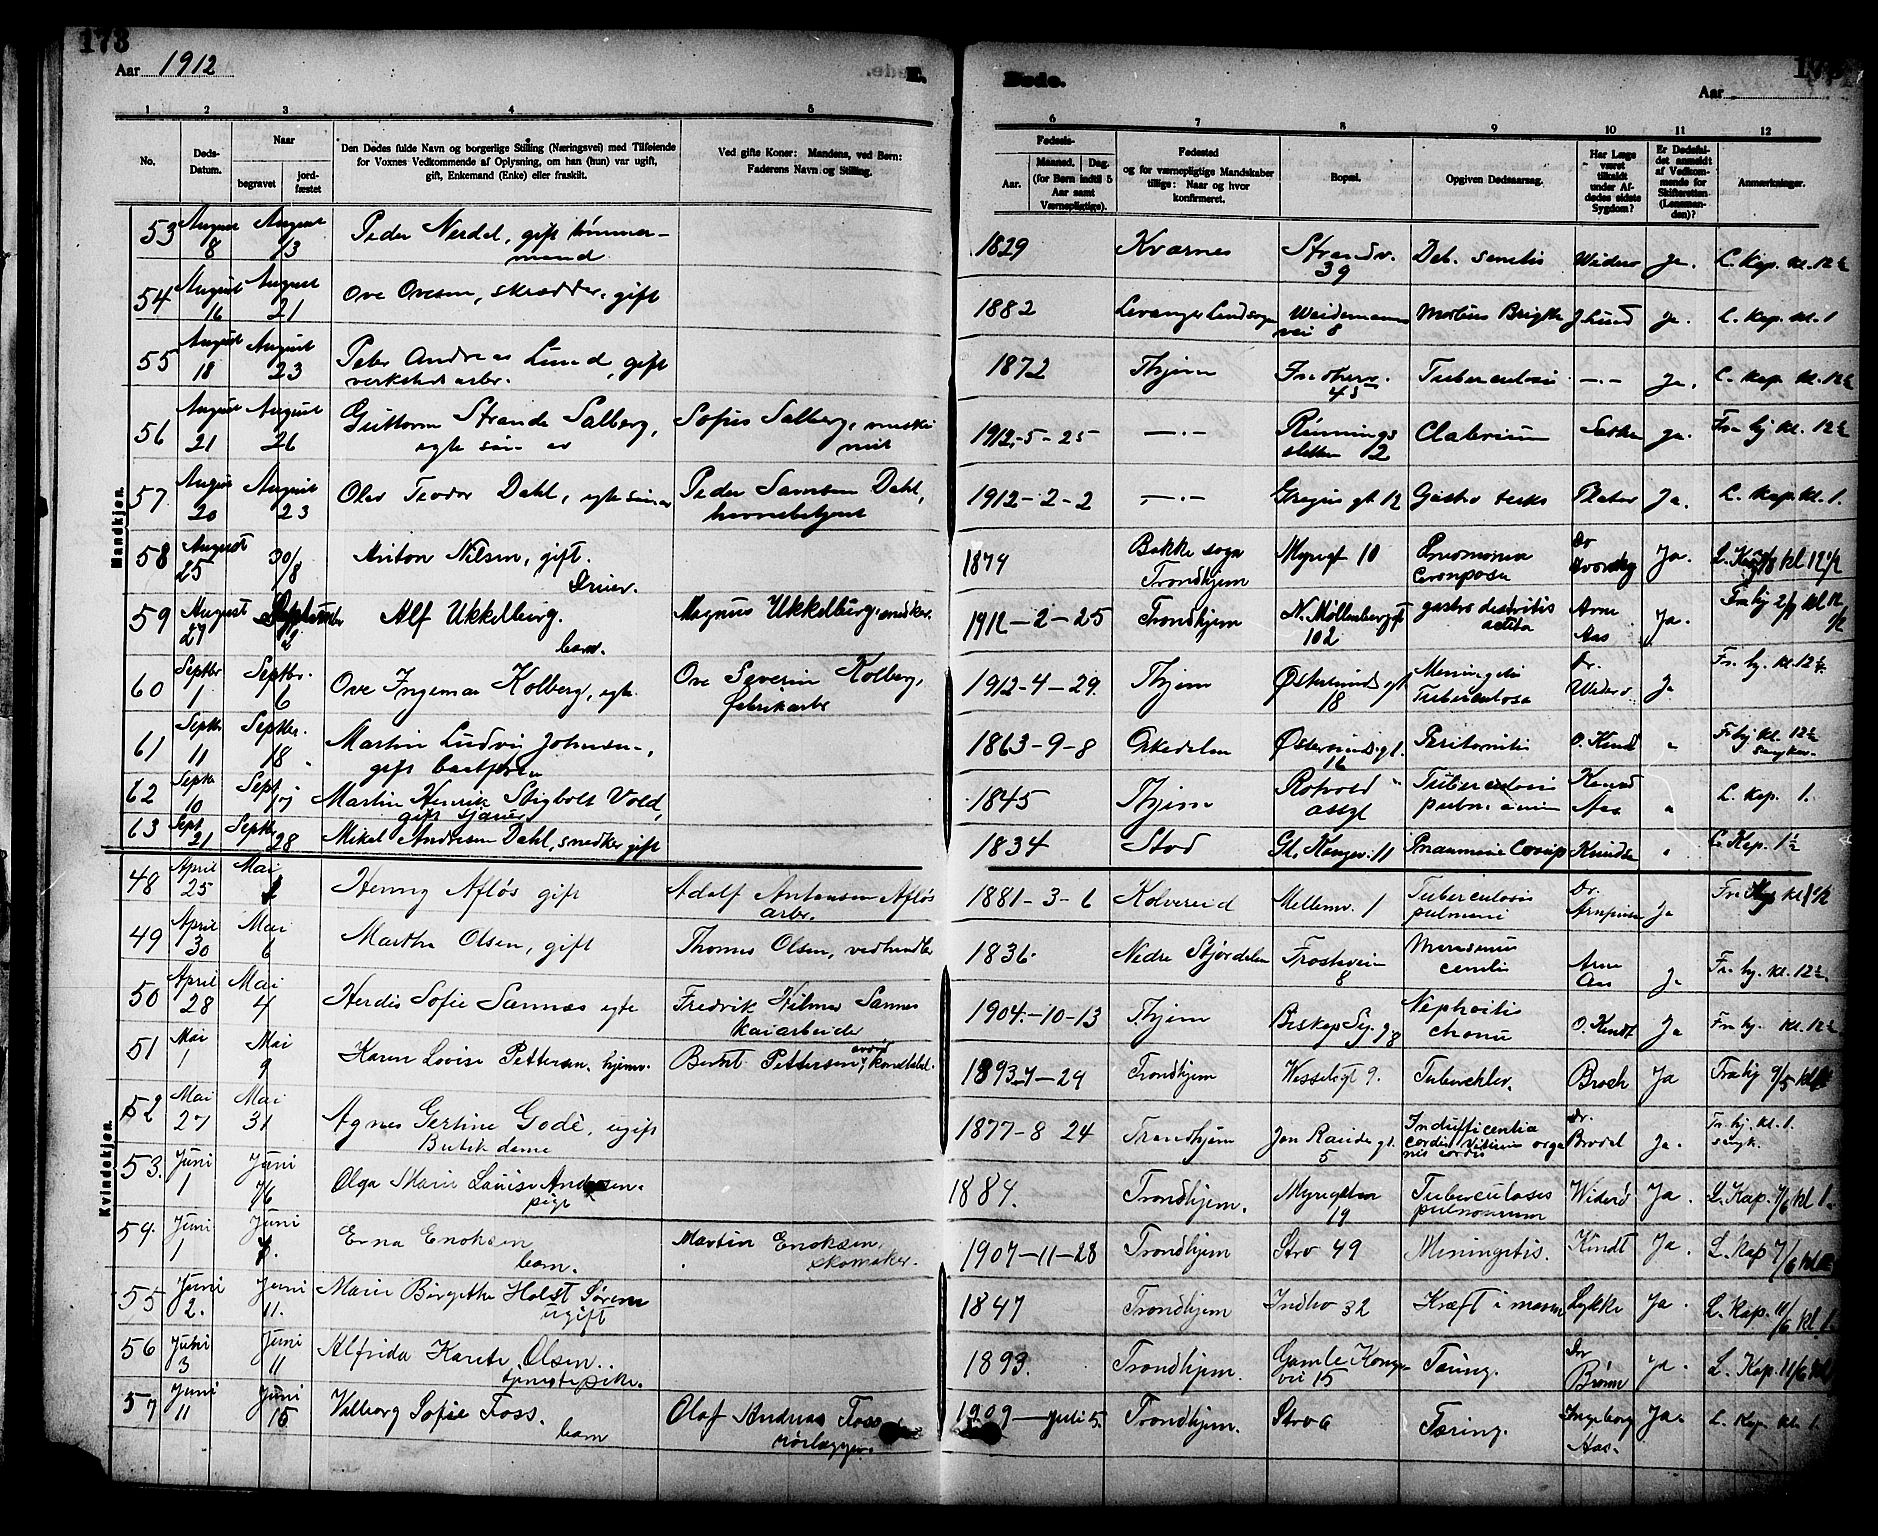 173
Aar 1912
E.
Døde.
Aar
1 2 3 4 5 6 7 8 9 10 11 12
No.
Døds-Datum.
Naar
begravet
jord-fæstet
Den Dødes fulde Navn og borgerlige Stilling (Næringsvei) med Tilføiende
for Voxnes Vedkommende af Oplysning, om han (hun) var ugift,
gift, Enkemand (Enke) eller fraskilt.
Ved gifte Koner: Mandens, ved Børn:
Faderens Navn og Stilling.
Fødsels-
Aar.
Maaned. Dag.
(for Børn indtil 5
Aar samt
Værnepligtige).
Fødested
og for værnepligtige Mandskaber
tillige: Naar og hvor
konfirmeret.
Bopæl.
Opgiven Dødsaarsag.
Har Læge
været
tilkaldt
under Af-
dødes sidste
Sygdom?
Er Dødsfal-
det anmeldt
af Vedkom-
mende for
Skifteretten
(Lensman-
den)?
Anmærkninger.
Mandkjøn.
53 August 8 August 13 Peder Nerdal, gift tømmer-
mand 1829 Kværnes Strandv. 39 Deb. senilis Widerø Ja. L. Kap. kl. 12½
54 August 16 August 21 Ove Ovesen, skrædder, gift 1882 Levanger Landsogn Weidemanns
vei 8 Morbus Brigthi J Lund Ja. L. kap. kl. 1
55 August 18 August 23 Peter Andreas Lund, gift
verkstedsarbr. 1872 Thjem 45 Tuberculosis —.— Ja. L. kap. kl. 12½
56 August 21 August 26 Guttorm Strande Salberg,
egte søn av Sofus Salberg, maski
nist 1912-5-25 —.— Rønnings
sletten 12 Ja. Fra hj kl. 12½
57 August 20 August 23 Olav Teodor Dahl, egte søn av Peder Samsen Dahl,
havnebetjent 1912-2-2 —.— gt. 12 Gastro Ja. L. kap. kl. 1.
58 August 25 30/8 Anton Nilsen, gift. 1874 Bakke sogn
Trondhjem Myrgt 10 Pneomonia
Dr Ja. L. Kap kl 12½
59 August 27 September 2 Alf Ukkelberg.
barn. Magnus Ukkelberg, snedker. 1912-2-25 Trondhjem N. Møllenberggt
102 gastro
Arne
Aas Ja. Fra hj 2/9 kl 12
½
60 Septbr 1 Septbr. 6 Ove Ingemar Kolberg, egte Ove Severin Kolberg,
fabrikarbr 1912-4-29. Thjem Østersunds gt
18 Meningitis
Tuberculosa Dr.
Widerø Ja Fra hj. kl. 12½
61 Septbr 11 Septbr. 18 Martin Ludvig Johnsen,
gift baatfører 1863-9-8 Orkedalen Østersunds gt.
16 Peritonitis O. Kindt " Fra hj kl. 12½
62 Septbr 10 Sept 17 Martin Henrik Stigbolt Vold,
gift sjauer 1845 Thjem Rotvold
asyl Tuberculosis
pulm. Knud
Aas " L. kap. 1.
63 Sept 21 Septbr 28 Mikal Andreasen Dahl, snedker gift 1834 Stod Gl. Kongev. 11 Pneumonie Knudsen " L. Kap. 1½
Kvindekjøn.
48 April 25 Mai Henny Afløs gift Adolf Antonsen Afløs
arbr. 1881-3-6 Kolvereid Mellemv. 1 Tuberculosis
pulmoni Dr. Ja
49 April 30 Mai 6 Martha Olsen, gift Thomas Olsen, vedhandler 1836. Nedre Stjørdalen Frostavein
8 Marasmus
senilis Arne
Aas Ja Fra hj. kl. 12½.
50 April 28 Mai 4 Herdis Sofie Sannæs egte Fredrik Hilmar Sannes
Kaiarbeider 1904-10-13 Thjem Biskop Sig. g 8 Nephritis
chroni O. Kindt Ja Fra hj. kl. 12½
51 Mai 1 Mai 9 Karen Lovise Pettersen, hjemv. Berent Pettersen, konstabel. 1893-7-29 Trondhjem Wesselsgt 9. Tuberchler. Broch Ja Fra hj 9/5 kl
52 Mai 27 Mai 31 Agnes Gertine Godè, ugift
Butikdame 1877-8 24 Trondhjem Jon Raudes gt.
5 Insufficentia
cordis Vitium orga
nis cordis Dr.
Ja. Fra hj. kl. 1.
53. Juni 1 7/6 Olga Marie Louise Andersen.
pige 1884. Trondhjem. Myrgaten
19 Tuberculoses
pulmonum Widerø Ja. L. Kap. 7/6 kl 1.
54. Juni 1 Juni 7. Erna Enoksen
barn. Martin Enoksen,
skomaker. 1907-11-28 Trondhjem Stro 49 Miningitis. Kindt Ja. L. Kap 7/6 kl
55 Juni 2. Juni 11. Marie Birgithe Holst Sørem
ugift 1847 Trondhjem Indho 32 Kræft i maven Lykke Ja. L. Kap. 11/6 kl. 1
56 Juni 3 Juni 11 Alfrida Karete Olsen.
tjenestepike. 1893. Trondhjem. Gamle Konge
vei 15 Tæring. Dr
Brønn Ja. L. Kap. 11/6 kl
57 Juni 11 Juni 15 Valborg Sofie Foss.
barn Olaf Andreas Foss
rørlægger. 1909 — juli 5. Trondhjem. Stro 6 Tæring. Ingeborg
Aas. Ja. L. Kap kl 1.